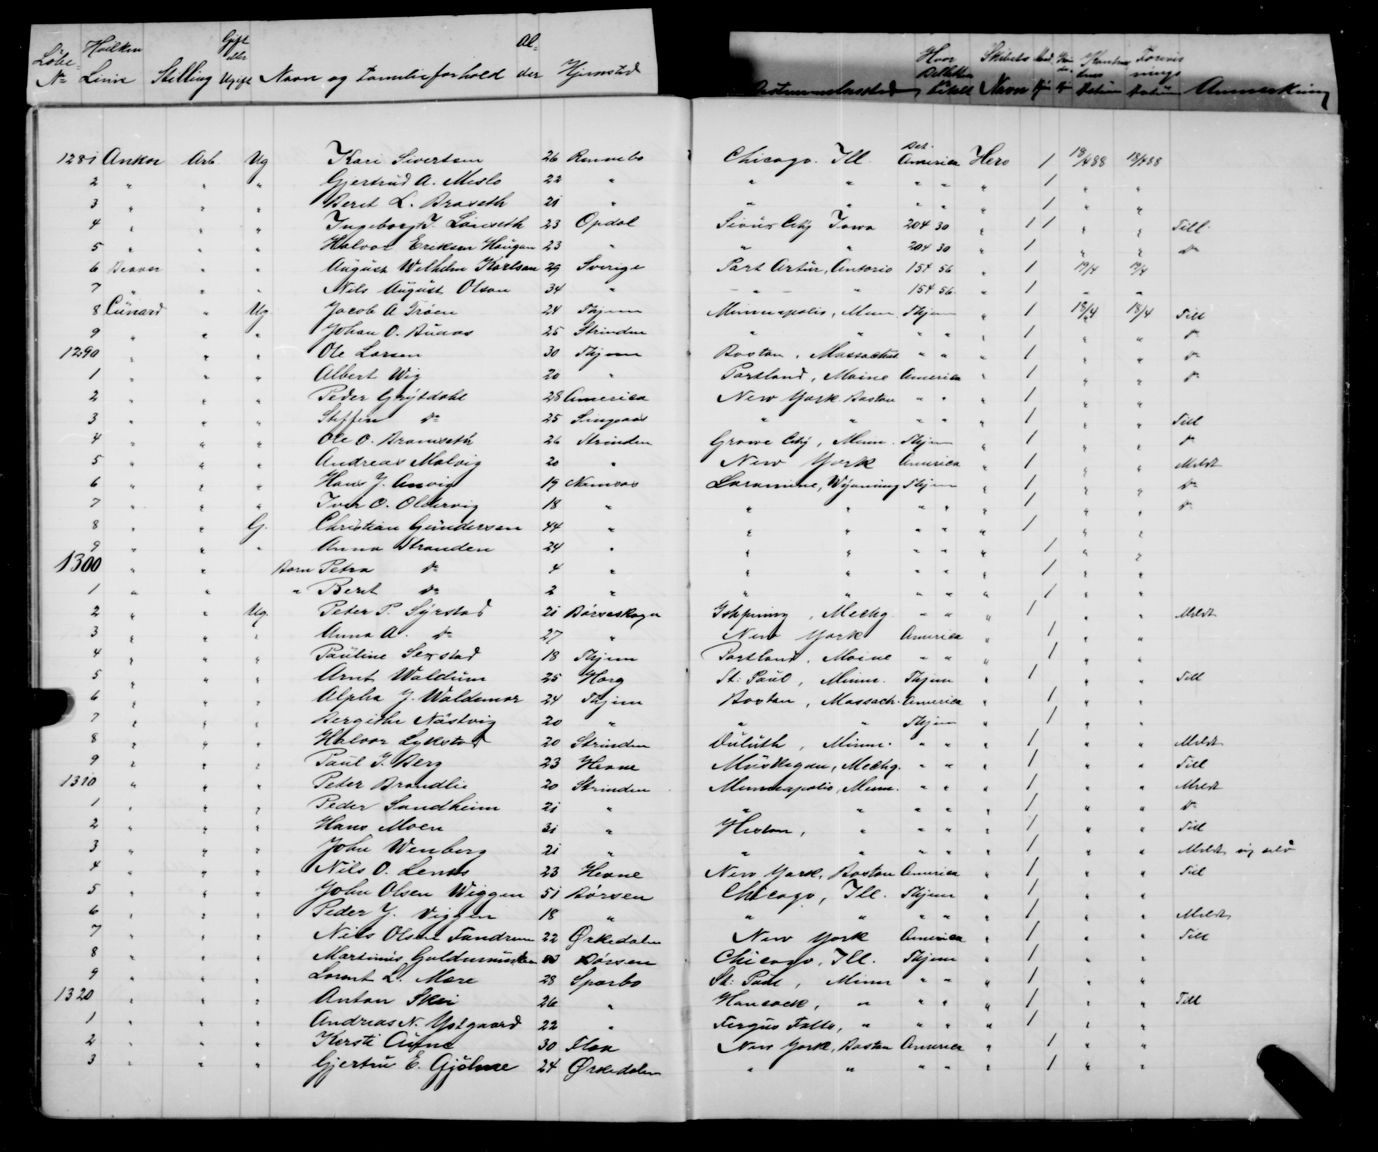 Löbe- Hvilken Gift eller Al-
No Linie Stilling Ugift Navn og Familieforhold der Hjemsted Bestemmelsessted Hvor Billetten betalt Skibets Navn Anmerkning
1281 Anker Arb Ug Kari Sivertsen 26 Rennebo Chicago. Ill. America Hero 1 18/4 88 18/4 88
2 " " " Gjertrud A. Meslo 22 " " " " " " 1 " "
3 " " " Beret L. Braseth 21 " " " " " " 1 " "
4 " " " Ingeborg J. 23 Opdal Sioux City Iowa 204 30 " 1 1 " " Till
5 " " " Halvor Eriksen Haugan 23 " " " 204 30 " 1 " " do
6 Beaver " " August Wilhelm Karlson 29 Sverige Port Artur, Antorio 154 56 " 1 19/4 19/4
7 " " " Nils August Olson 34 " " " 154 56 " 1 " "
8 Cunard " Ug Jacob A Troen 24 Thjem Minneapolis, Minn Thjem " 1 18/4 18/4 Till
9 " " " Johan O. 25 Strinden " " " " " 1 " " do
1290 " " " Ole Larsen 30 Thjem Boston, Massachus " " " 1 " " do
1 " " " Albert Wig 20 " Portland, Maine America " 1 " " do
2 " " " Peder Grytdahl 28 America New York Boston " " " 1 " "
3 " " " Steffen do 25 Singsaas " " " " " 1 " " Till
4 " " " Ole O. Bromseth 26 Strinden Grove City, Minn. Thjem " 1 " " do
5 " " " Andreas Malvig 20 " New York America " 1 " " Meldt
6 " " " Hans J. 19 Namsos Laramine, Wyoming Thjem " 1 " " do
7 " " " Iver O. Oldervig 18 " " " " " " 1 " " do
8 " " G. Christian Gundersen 44 " " " " " " 1 " "
9 " " " Anna Stranden 24 " " " " " " 1 " "
1300 " " Born Petra do 4 " " " " " " 1 " "
1 " " " Beret do 2 " " " " " " 1 " "
2 " " Ug Peder P. Syrstad 21 Börseskogn Ishpming, Mechg " " " 1 " " Meldt
3 " " " Anna A. do 27 " New York America " 1 " "
4 " " " Pauline Sexstad 18 Thjem Portland, Maine " " " 1 " "
5 " " " Arnt Waldum 25 Horg St: Paul, Minn. Thjem " 1 " " Till
6 " " " Alpha J. Waldemar 24 Thjem Boston, Massach. America " 1 " "
7 " " " Bergithe Nastvig 20 " " " Thjem " 1 " "
8 " " " Halvor Lykstad 20 Strinden Duluth, Minn. " " " 1 " " Meldt
9 " " " Paul J. Berg 23 Hevne Muskegan, Mechg. " " " 1 " " Till
1310 " " " Peder Brandlie 20 Strinden Minneapolis, Minn. " " " 1 " " Meldt
1 " " " Peder Sandheim 21 " " " " " " 1 " " do
2 " " " Hans Moen 31 " Hixton, " " " " 1 " " Till
3 " " " John Wenberg 21 " " " " " " 1 " " Meldt
4 " " " Nils O. 23 Hevne New York, Boston America " 1 " " Till
5 " " " John Olsen Wiggen 51 Börsen Chicago, Ill. Thjem " 1 " "
6 " " " Peder J. Viggen 18 " " " " " " 1 " " Meldt
7 " " " Nils Olsen 22 Ørkedalen New York America " 1 " " Till
8 " " " Martinus Börsen Chicago, Ill. Thjem " 1 " "
9 " " " Lornt L. Mære 28 Sparbo St: Paul, Minn " " " 1 " "
1320 " " " Anton Skei 26 " Hancock, " " " " 1 " " Till
1 " " " Andreas N. Ystgaard 22 " Fergus Falls, " " " " 1 " "
2 " " " Kersti Aune 30 Flaa New York, Boston America " 1 " "
3 " " " Gjertru E. Gjölme 24 Ørkedalen " " " " " 1 " "